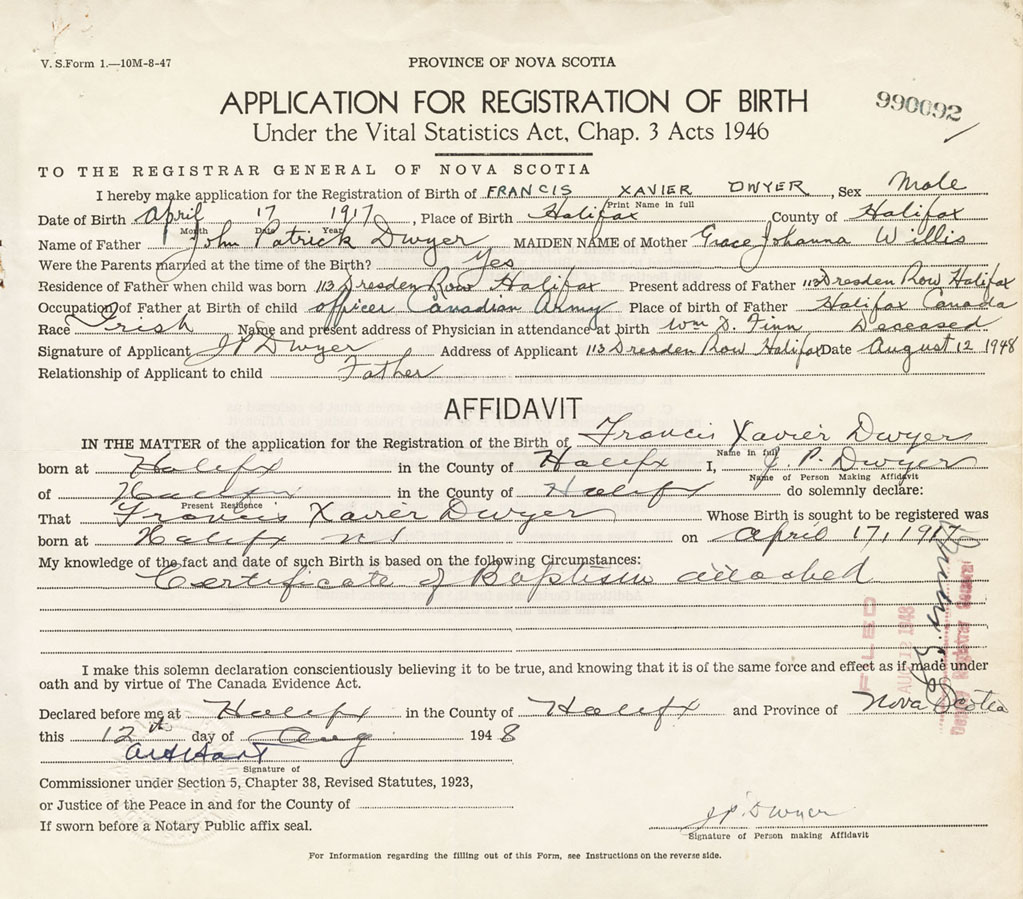 V. S.Form 1.—10M-8-47
PROVINCE OF NOVA SCOTIA
APPLICATION FOR REGISTRATION OF BIRTH
990092
Under the Vital Statistics Act, Chap. 3 Acts 1946
TO THE REGISTRAR GENERAL OF NOVA SCOTIA
I hereby make application for the Registration of Birth of FRANCIS XAVIER DWYER, Sex Male
Print Name in full
Date of Birth April 17 1917, Place of Birth Halifax County of Halifax
Month Date Year
Name of Father John Patrick Dwyer, MAIDEN NAME of Mother Grace Johanna Willis
Were the Parents married at the time of the Birth? Yes
Residence of Father when child was born 113 Dresden Row Halifax Present address of Father 113 Dresden Row Halifax
Occupation of Father at Birth of child officer Canadian Army Place of birth of Father Halifax Canada
Race Irish Name and present address of Physician in attendance at birth Wm D. Finn Deceased
Signature of Applicant J P Dwyer Address of Applicant 113 Dresden Row Halifax Date August 12 1948
Relationship of Applicant to child Father
AFFIDAVIT
IN THE MATTER of the application for the Registration of the Birth of Francis Xavier Dwyer
Name in full
born at Halifx in the County of Halifx I, J. P. Dwyer
Name of Person Making Affidavit
of Halifx in the County of Halifx do solemnly declare:
Present Residence
That Francis Xavier Dwyer Whose Birth is sought to be registered was
born at Halifx NS on April 17, 1917
My knowledge of the fact and date of such Birth is based on the following Circumstances:
Certificate of Baptism attached
FILED
AUG 12 1948
Deputy Registrar General
I make this solemn declaration conscientiously believing it to be true, and knowing that it is of the same force and effect as if made under
oath and by virtue of The Canada Evidence Act.
Declared before me at Halifx in the County of Halifx and Province of Nova Scotia
this 12th day of Aug 1948
Signature of
Commissioner under Section 5, Chapter 38, Revised Statutes, 1923,
or Justice of the Peace in and for the County of
If sworn before a Notary Public affix seal.
J P. Dwyer
Signature of Person making Affidavit
For Information regarding the filling out of this Form, see Instructions on the reverse side.